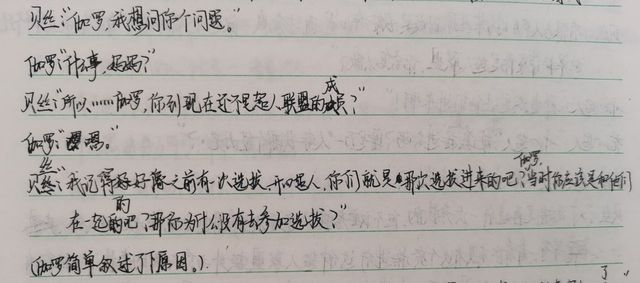 贝丝:“伽罗,我想问你个问题。”
伽罗:“什么事,妈妈?”
贝丝:“所以……伽罗,你到现在还不是超人联盟的成员?”
伽罗:“嗯。”
贝丝:“我记得好像之前有一次选拔,开心超人,你们就是那次选拔进来的吧?伽罗,当时你应该是和他们
在一起的吧?那你为什么没有去参加选拔?”
(伽罗简单叙述了下原因。)
了”